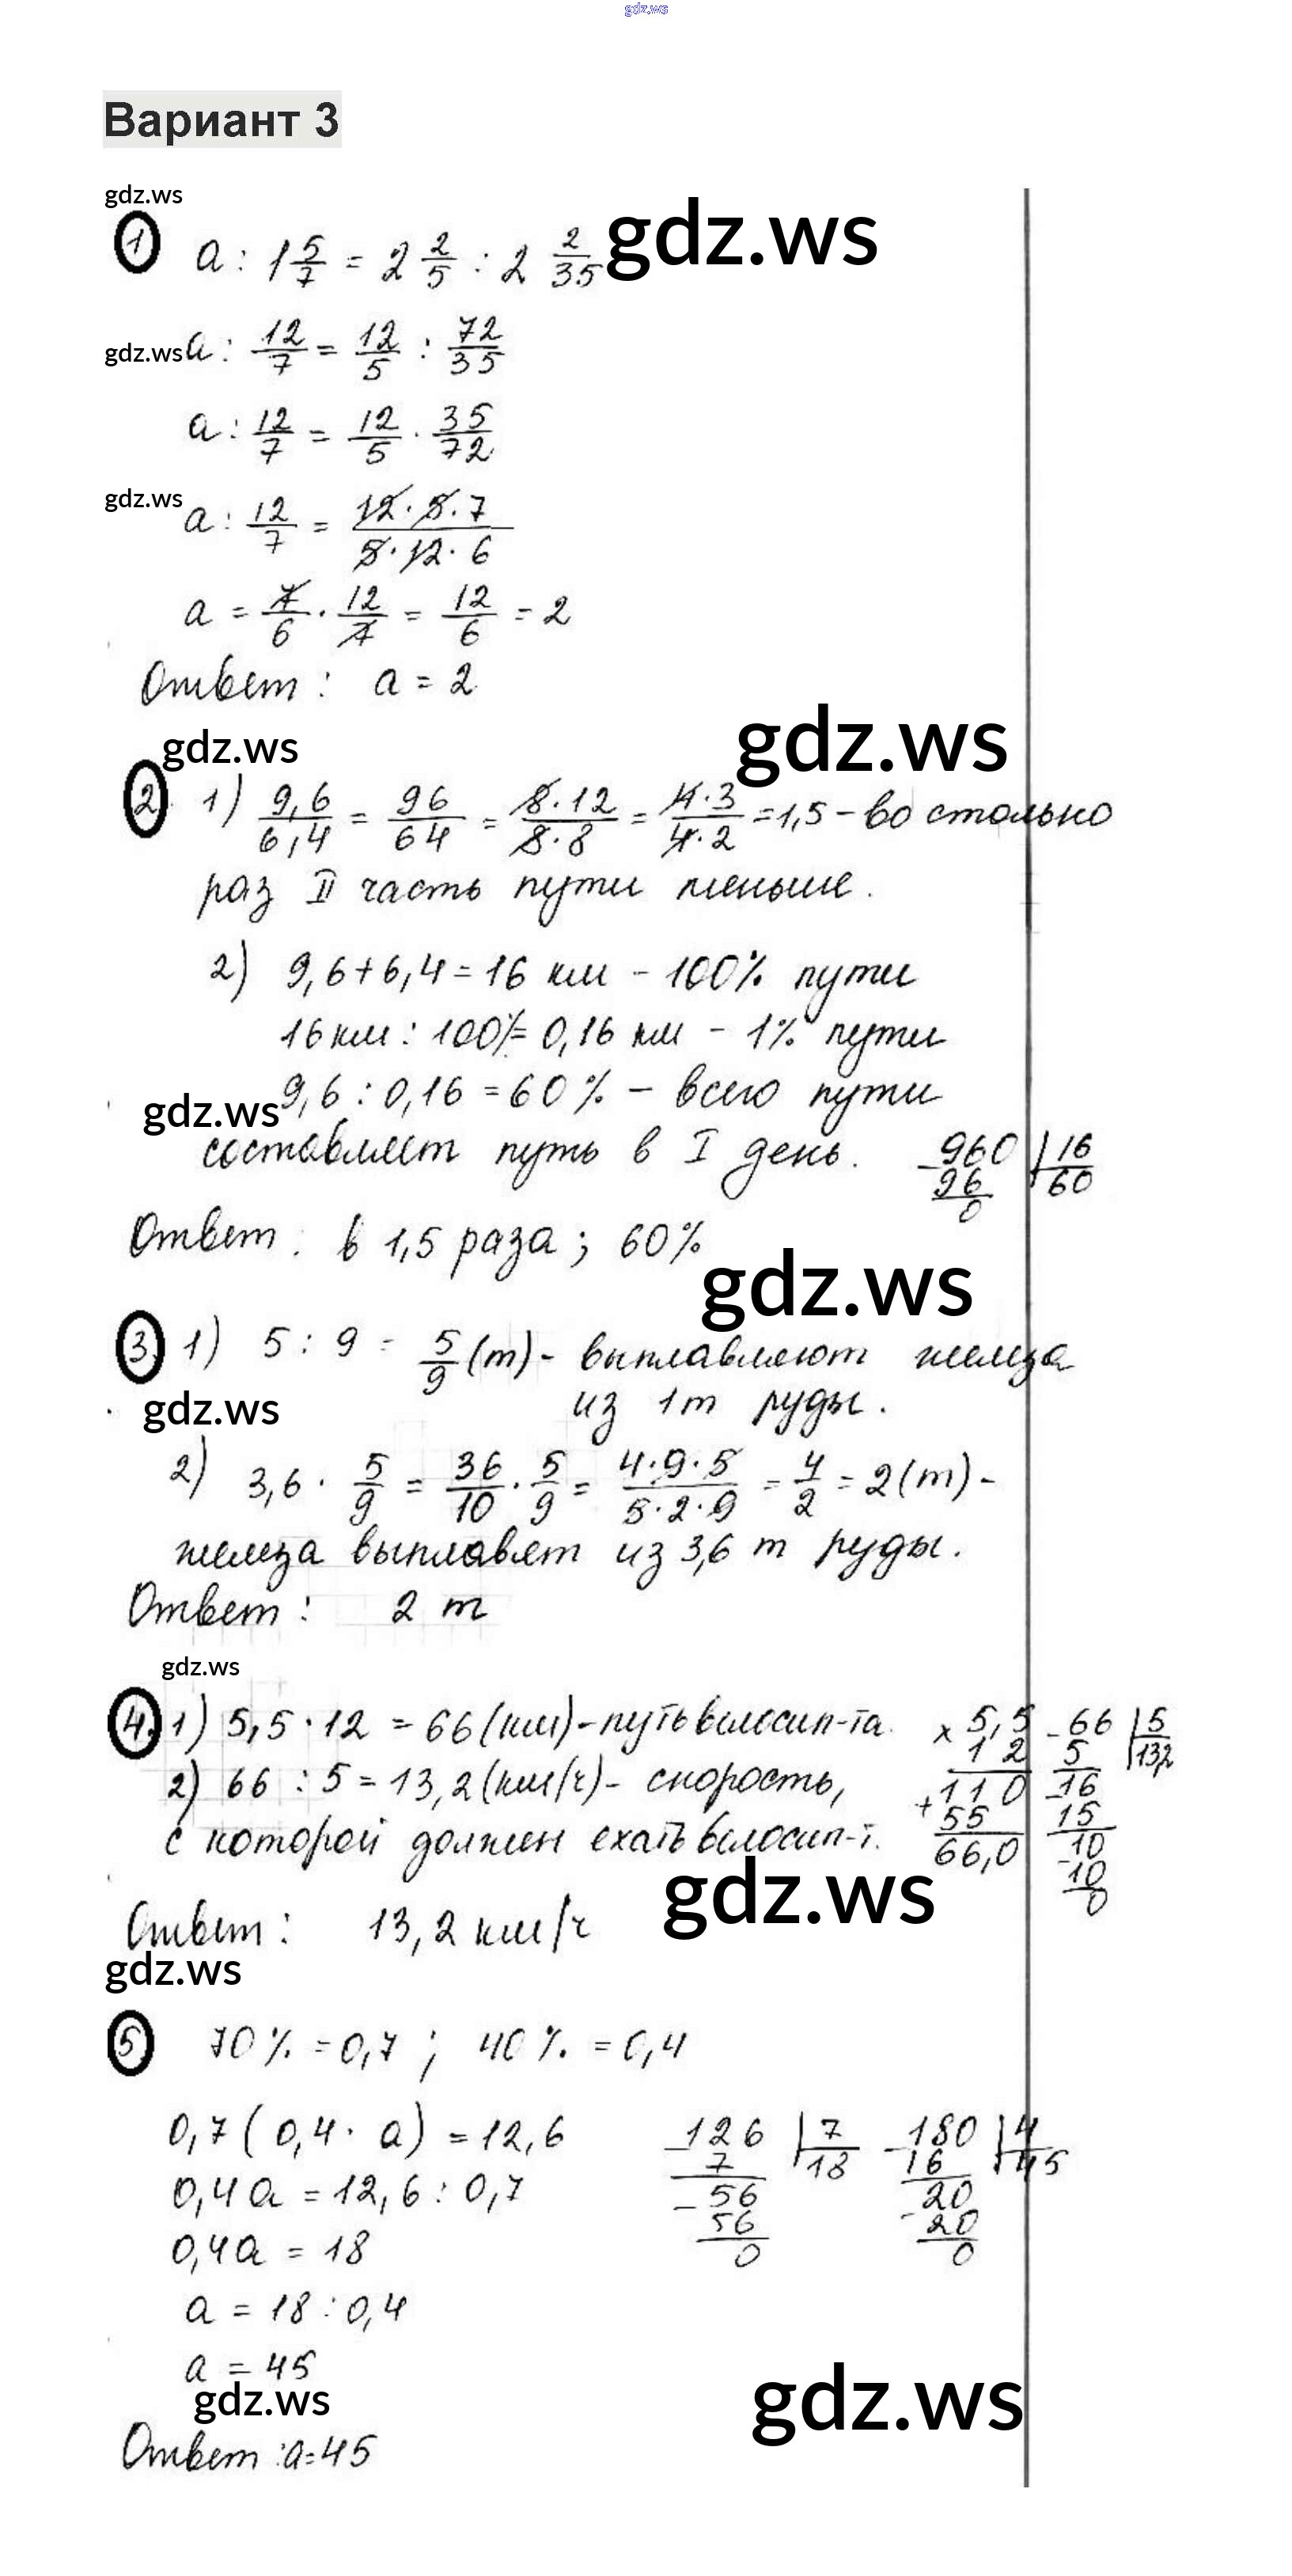 gdz.ws
Вариант 3
gdz.ws
gdz.ws
1 a : 1 5/7 = 2 2/5 : 2 2/35
gdz.ws
a : 12/7 = 12/5 : 72/35
a : 12/7 = 12/5 · 35/72
gdz.ws
a : 12/7 = 12·5·7/5·12·6
a = 7/6 · 12/7 = 12/6 = 2
Ответ: a = 2
gdz.ws
gdz.ws
2. 1) 9,6/6,4 = 96/64 = 8·12/8·8 = 4·3/4·2 = 1,5 – во столько
раз II часть пути меньше.
2) 9,6 + 6,4 = 16 км – 100% пути
16 км : 100% = 0,16 км – 1% пути
gdz.ws
9,6 : 0,16 = 60% – всего пути
составляет путь в I день.
960 | 16
96 60
0
Ответ: в 1,5 раза; 60%
gdz.ws
3. 1) 5 : 9 = 5/9 (т) – выплавляют железа
из 1 т руды.
gdz.ws
2) 3,6 · 5/9 = 36/10 · 5/9 = 4·9·5/5·2·9 = 4/2 = 2 (т) –
железа выплавят из 3,6 т руды.
Ответ: 2 т
gdz.ws
4. 1) 5,5 · 12 = 66 (км) – путь велосип-та.
2) 66 : 5 = 13,2 (км/ч) – скорость,
с которой должен ехать велосип-т.
× 5,5
1 2
+ 110
55
66,0
- 66 | 5
5 13,2
- 16
15
- 10
10
0
gdz.ws
Ответ: 13,2 км/ч
gdz.ws
5 70% = 0,7; 40% = 0,4
0,7 (0,4 · a) = 12,6
0,4a = 12,6 : 0,7
0,4a = 18
a = 18 : 0,4
a = 45
- 126 | 7
7 18
- 56
56
0
- 180 | 4
16 45
- 20
20
0
gdz.ws
gdz.ws
Ответ: a = 45